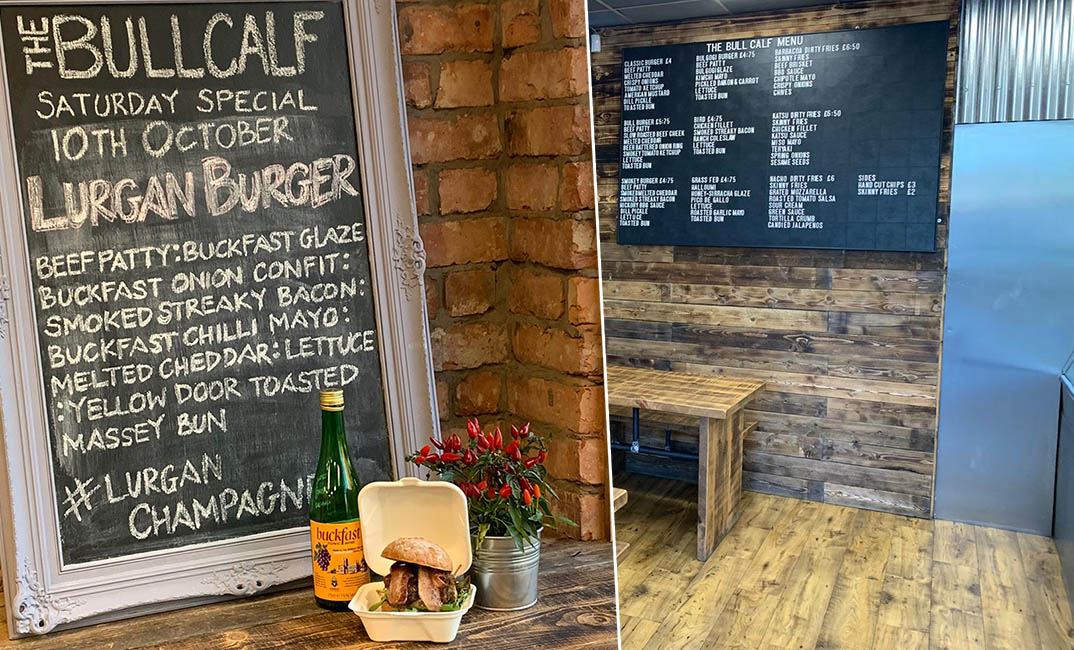 THE BULL CALF
SATURDAY SPECIAL
10TH OCTOBER
LURGAN BURGER
BEEF PATTY : BUCKFAST GLAZE
BUCKFAST ONION CONFIT :
SMOKED STREAKY BACON :
BUCKFAST CHILLI MAYO :
MELTED CHEDDAR : LETTUCE
: YELLOW DOOR TOASTED
MASSEY BUN
#LURGAN
CHAMPAGNE
buckfast
THE BULL CALF MENU
CLASSIC BURGER £4
BEEF PATTY
MELTED CHEDDAR
CRISPY ONIONS
TOMATO KETCHUP
AMERICAN MUSTARD
DILL PICKLE
TOASTED BUN
BULGOGI BURGER £4:75
BEEF PATTY
BULGOGI GLAZE
KIMCHI MAYO
PICKLED DAIKON & CARROT
LETTUCE
TOASTED BUN
BARBACOA DIRTY FRIES £6:50
SKINNY FRIES
BEEF BRISKET
BBQ SAUCE
CHIPOTLE MAYO
CRISPY ONIONS
CHIVES
BULL BURGER £5:75
BEEF PATTY
SLOW ROASTED BEEF CHEEK
MELTED CHEDDAR
BEER BATTERED ONION RING
SMOKEY TOMATO KETCHUP
LETTUCE
TOASTED BUN
BIRD £4:75
CHICKEN FILLET
SMOKED STREAKY BACON
RANCH COLESLAW
LETTUCE
TOASTED BUN
KATSU DIRTY FRIES £6:50
SKINNY FRIES
CHICKEN FILLET
KATSU SAUCE
MISO MAYO
TERYAKI
SPRING ONIONS
SESAME SEEDS
SMOKEY BURGER £4:75
BEEF PATTY
SMOKED MELTED CHEDDAR
SMOKED STREAKY BACON
HICKORY BBQ SAUCE
DILL PICKLE
LETTUCE
TOASTED BUN
GRASS FED £4:75
HALLOUMI
HONEY-SIRRACHA GLAZE
PICO DE GALLO
LETTUCE
ROASTED GARLIC MAYO
TOASTED BUN
NACHO DIRTY FRIES £6
SKINNY FRIES
GRATED MOZZARELLA
ROASTED TOMATO SALSA
SOUR CREAM
GREEN SAUCE
TORTILLA CRUMB
CANDIED JALAPENOS
SIDES
HAND CUT CHIPS £3
SKINNY FRIES £2